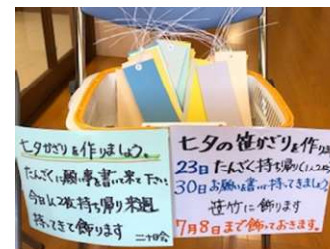 七夕かざりを作りましょう。
たんざくに願い事を書いて来て下さい
今日1人2枚持ち帰り来週
持ってきて飾ります
二十日会
七夕の笹かざりを作り
23日たんざく持ち帰り(1人2枚)
30日お願いを書い持ってきましょう
笹竹に飾ります
7月8日まで飾っておきます。